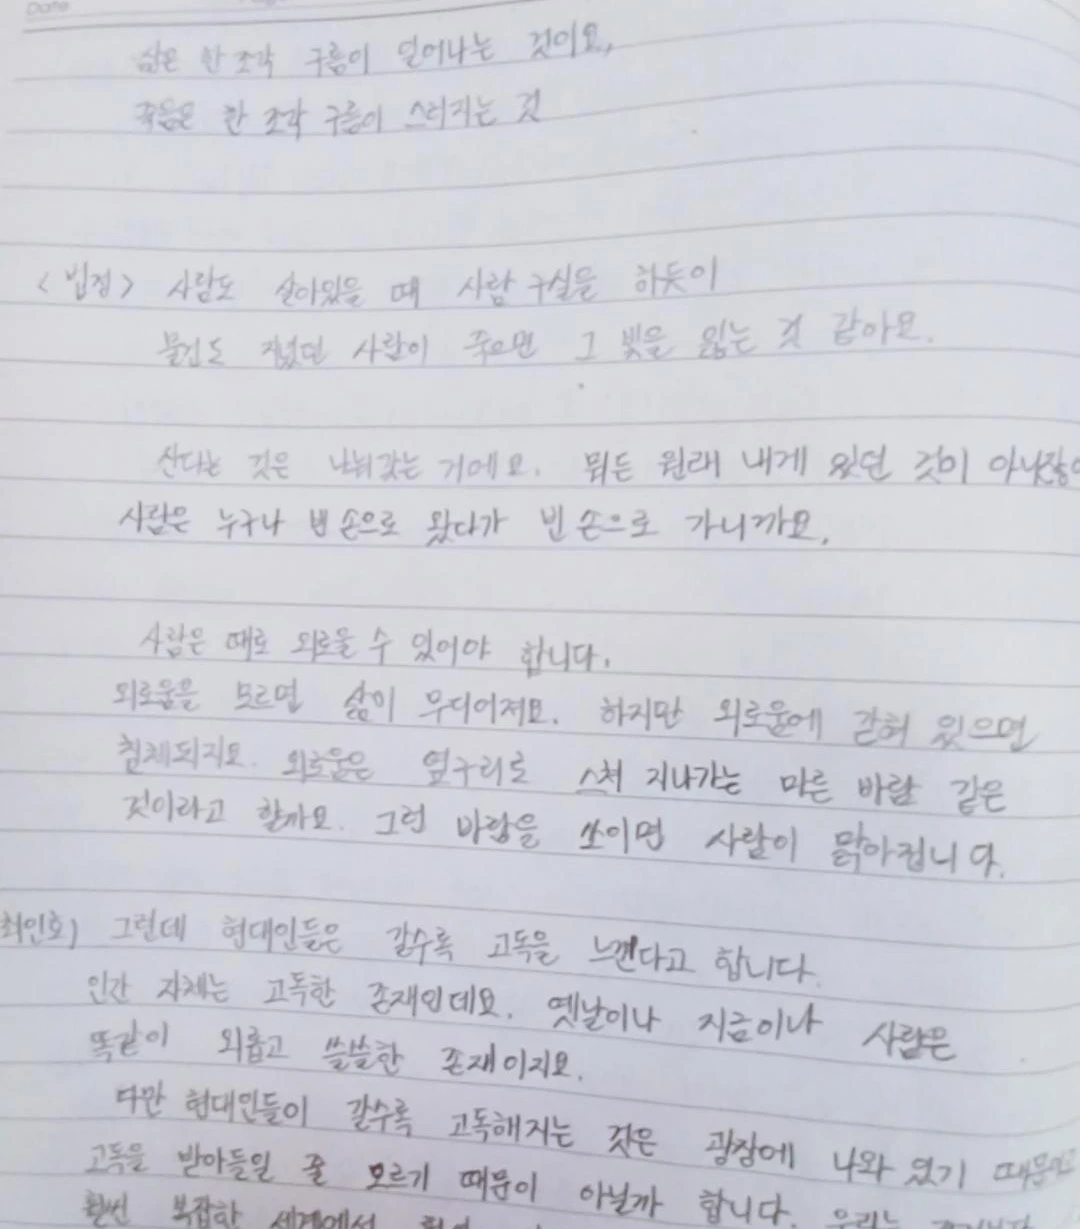 Date
삶은 한 조각 구름이 일어나는 것이요,
죽음은 한 조각 구름이 스러지는 것
<법정> 사람도 살아있을 때 사람 구실을 하듯이
물건도 지녔던 사람이 죽으면 그 빛을 잃는 것 같아요.
산다는 것은 나눠갖는 거에요. 뭐든 원래 내게 있던 것이 아니잖아
사람은 누구나 빈 손으로 왔다가 빈 손으로 가니까요.
사람은 때로 외로울 수 있어야 합니다.
외로움을 모르면 삶이 무디어져요. 하지만 외로움에 갇혀 있으면
침체되지요. 외로움은 옆구리로 스쳐 지나가는 마른 바람 같은
것이라고 할까요. 그런 바람을 쏘이면 사람이 맑아집니다.
최인호) 그런데 현대인들은 갈수록 고독을 느낀다고 합니다.
인간 자체는 고독한 존재인데요. 옛날이나 지금이나 사람은
똑같이 외롭고 쓸쓸한 존재이지요.
다만 현대인들이 갈수록 고독해지는 것은 광장에 나와 있기 때문이고
고독을 받아들일 줄 모르기 때문이 아닐까 합니다. 우리는
훨씬 복잡한 세계에서